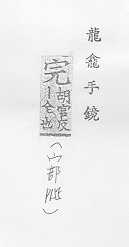 龍龕手鏡
完
胡官反
全也
(宀部